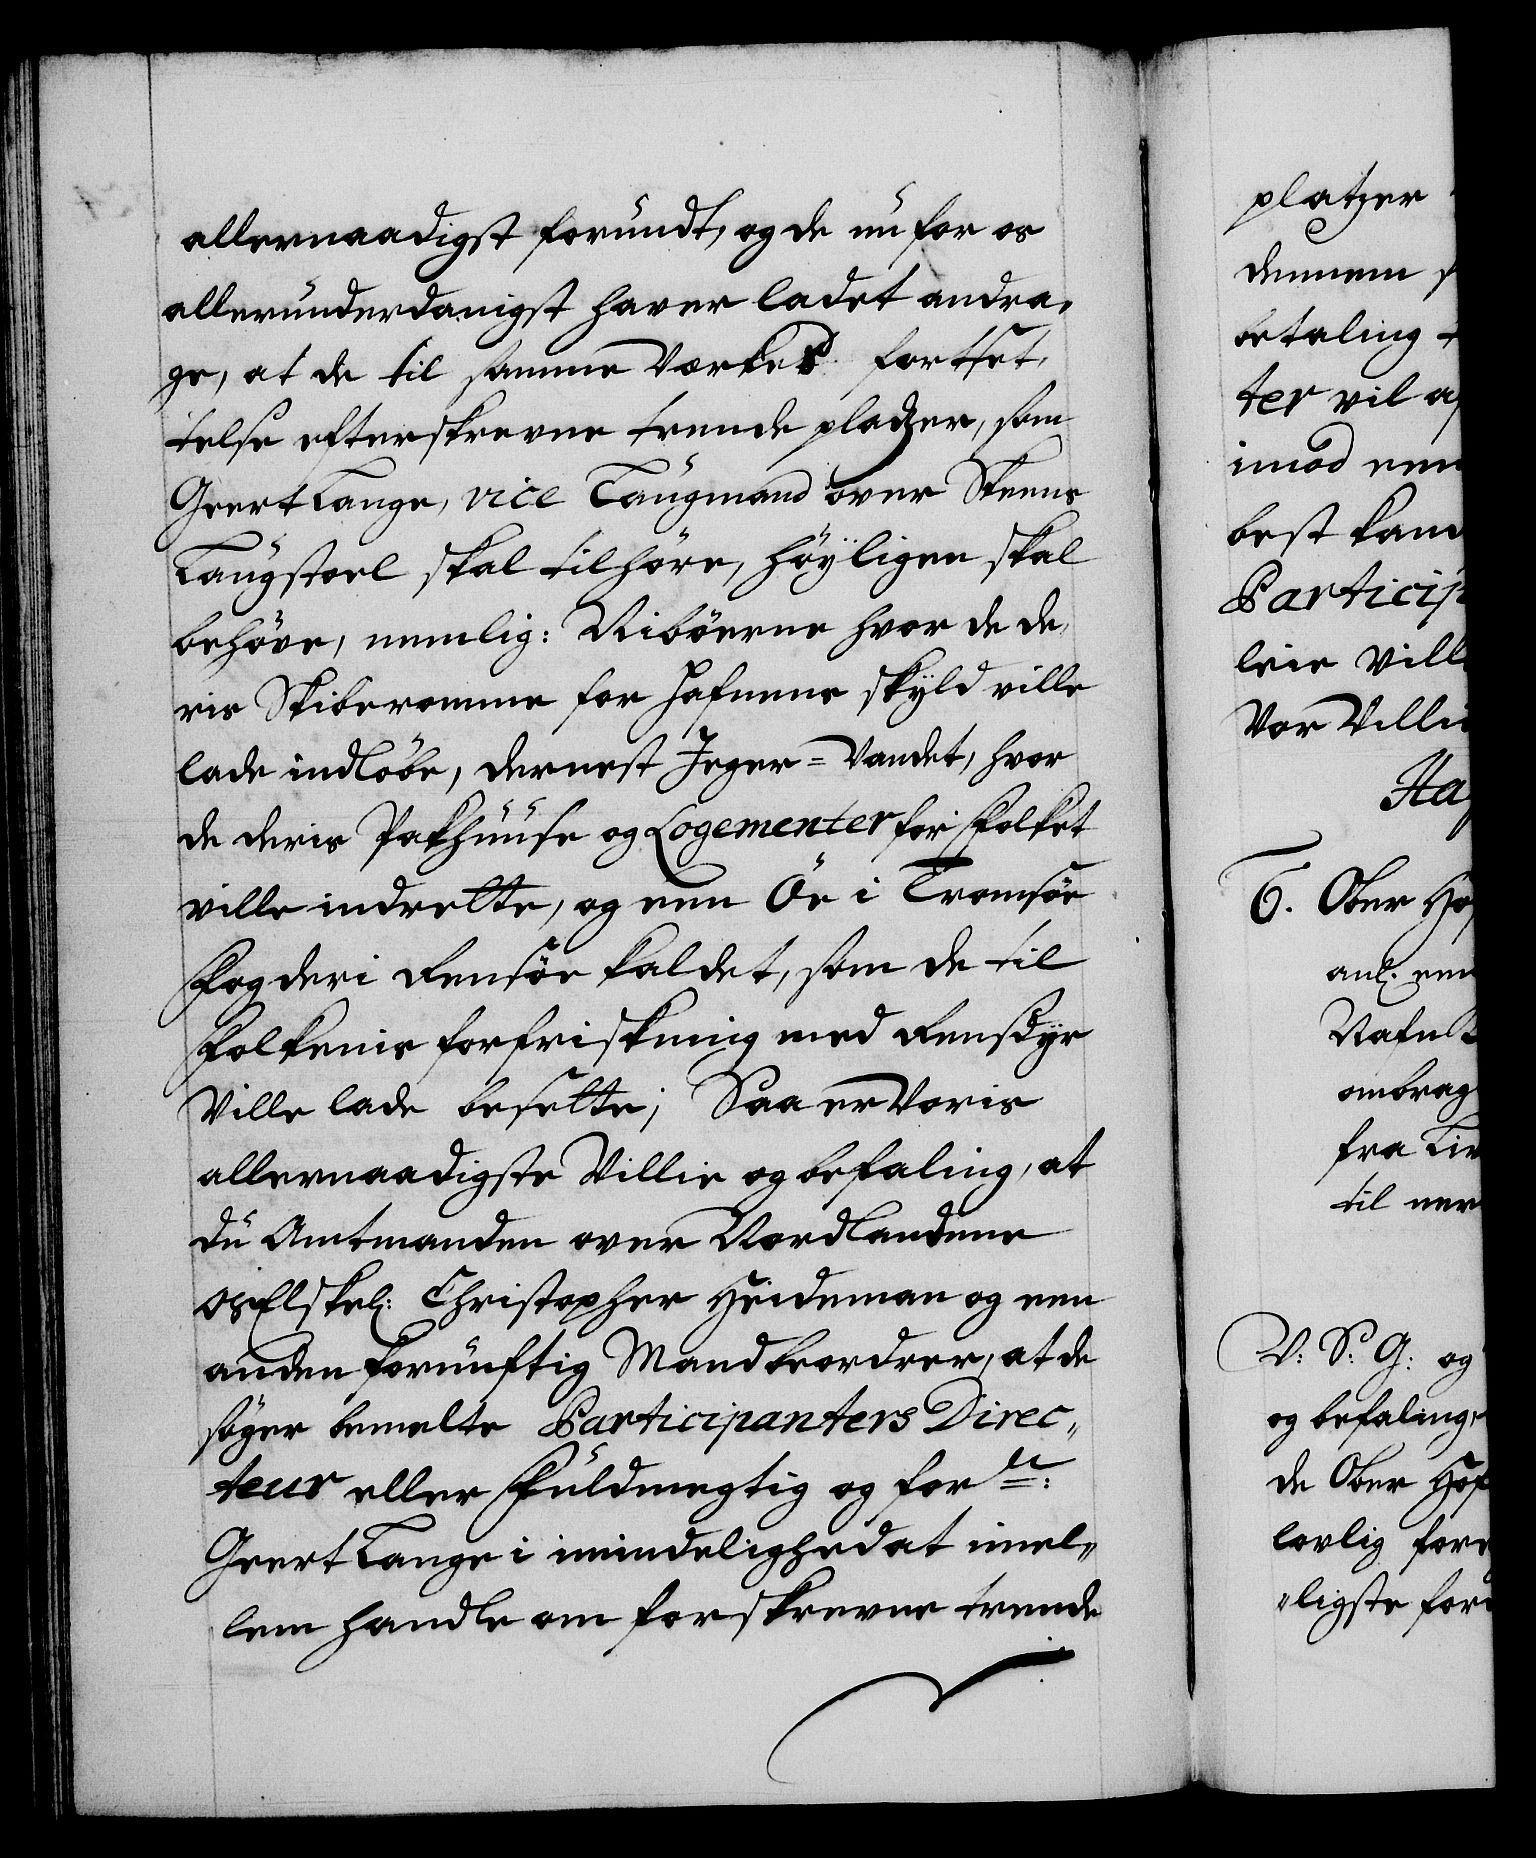 allernaadigst forundt, og de nu for os
allerunderdanigst haver ladet andra,
ge, at de til samme Værkes fortset,
telse efterskrevne trende pladzer, som
Geert Lange, vice Laugmand over Steens
Laugstoel skal tilhöre, höÿligen skal
behöve, nemlig: Riböerne hvor de de,
ris Skiberomme for Hafnens skÿld ville
lade indlöbe, dernest Jeger=Vandet, hvor
de deris Pakhuuse og Logementer for Folket
ville indrette, og een Öe i Tromsöe
Fogderi Rensöe kaldet, som de til
Folkenis forfriskning med Rensdÿr
Ville lade besette; Saa er Voris
allernaadigste Villie og befaling, at
du Amtmanden over Nordlandene
os Elskel: Christopher Heideman og een
anden fornuftig Mand beordrer, at de
söger bemelte Participanters Direc„
teur eller Fuldmegtig og for ne:
Geert Lange i mindelighed at imel„
lem handle om forskrevne trende
platzer
dennem
betaling
ter vil
imod een
best kand
Particip
leie Vill
Vor Villi
Haf
6. Ober Hof
anl. een
ombrag
fra
til
V: S: G: og
og befaling,
de Ober Hof
lovlig
„ligste for